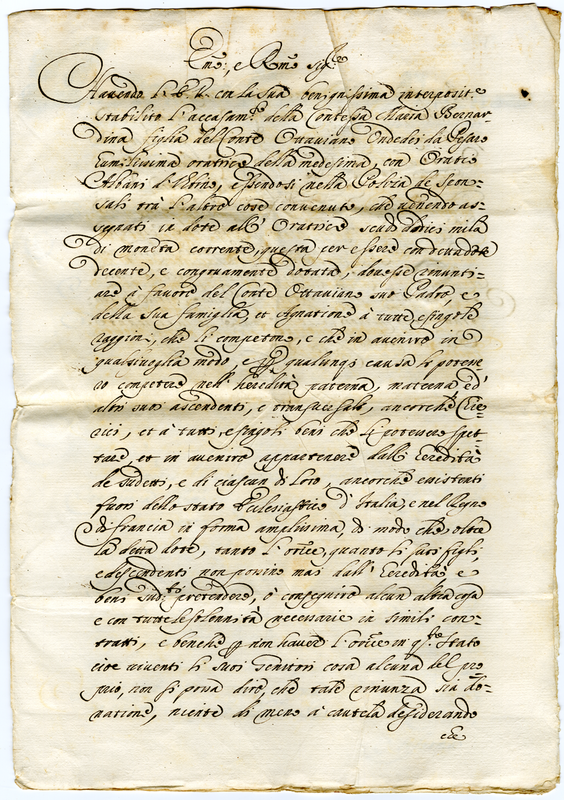 Em.o, e Rmo Sig.re
Havendo l'E. V. con la sua benignissima interposit.e
stabilito l'accasam.to della Contessa Maria Bernar=
dina figlia del Conte Ottaviano Ondedei da Pesaro
Hum:lissima oratrice della medesima, con Oratio
Albani d'Urbino, essendosi nella Poliza de Spon=
sali trà l'altre cose convenuto, che venendo as=
segnati in dote all'Oratrice scudi dodici mila
di moneta corrente, questa per essere con de. dote
decente, e congruamente dotata, dovesse renunti=
are à favore del Conte Ottaviano suo Padre, e
della sua famiglia, et Agnatione à tutte, e singole
raggioni, che li competono, e che in avenire in
qualsivoglia modo, e p qualunq; causa li potesse=
ro competere nell'heredità paterna, materna ed'
altri suoi ascendenti, e transversali, ancorche Cle=
rici, et à tutti, e singoli beni che li potessero spet=
tare, et in avenire appartenere dall'Eredità
de sudetti, e di ciascun di loro, ancorche existenti
fuori dello stato Ecclesiastico d'Italia, e nel Regno
di francia in forma amplissima, di modo che, oltre
la detta dote, tanto l'orice, quanto li suoi figli
e descendenti non possino mai dall'Eredità e
beni sud.i pretendere, ò conseguire alcun altra cosa
e con tutte le solennità necessarie in simili con=
tratti, e benche p non haver l'orice in q.to Stato
cioè viventi li suoi Genitori cosa alcuna del pro
prio, non si possa dire, che tale rinunza sia do=
natione, niente di meno à cautela desiderando